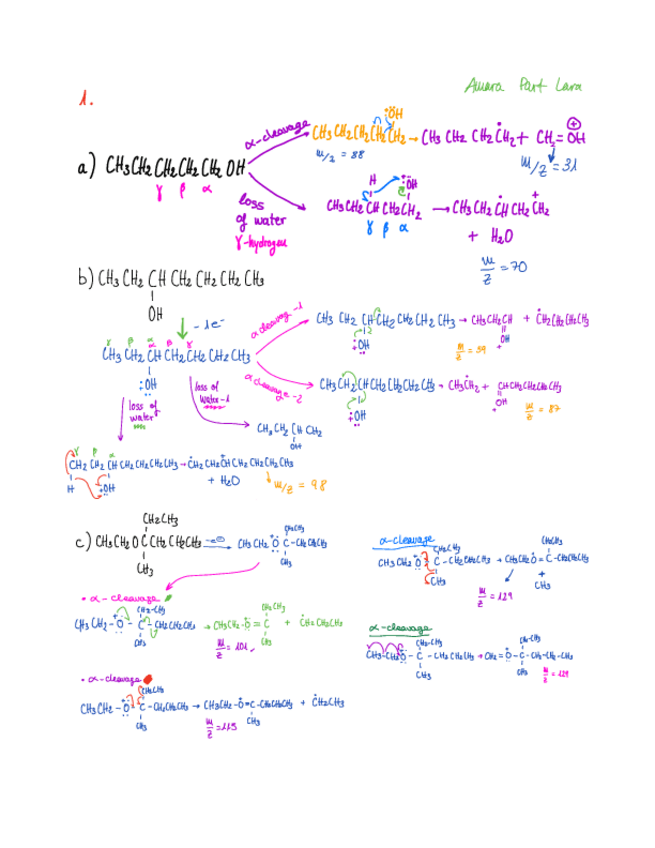 Amara Part Lara
1.
a) CH3CH2CH2CH2CH2OH
γ β α
α-cleavage
CH3CH2CH2CH2CH2 → CH3 CH2 CH2ĊH2 + CH2=OH
:ÖH
+
m/z = 88
m/z = 31
loss
of water
γ-hydrogen
H :ÖH
CH3CH2CHCH2CH2 → CH3CH2ĊHCH2CH2
+
γ β α
+ H2O
m/z = 70
b) CH3 CH2 CH CH2 CH2 CH2 CH3
OH
-1e-
γ β α β γ
CH3 CH2 CH CH2CH2CH2CH3
:ÖH
α cleavage-1
CH3 CH2 CHCH2 CH2 CH2 CH3 → CH3CH2CH + ĊH2CH2CH2CH3
:OH
OH
m/z = 59
α cleavage-2
CH3CH2CHCH2CH2CH2CH3 → CH3ĊH2 + CHCH2CH2CH2CH3
:OH
OH
m/z = 87
loss of
water
loss of
water-1
CH3 CH2 CH CH2
OH
γ β α
CH2 CH2 CH CH2CH2CH2CH3 → ĊH2 CH2CHCH2CH2CH2CH3
H :OH
+ H2O
m/z = 98
c) CH3CH2 O C CH2 CH2CH3
CH2CH3
CH3
-e⊖
CH3 CH2 Ö C-CH2CH2CH3
CH2CH3
CH3
• α-cleavage
CH3 CH2-O-C-CH2CH2CH3 → CH3CH2-O=C + ĊH2CH2CH3
CH2-CH3
CH3
CH2CH3
CH3
m/z = 101
• α-cleavage
CH2CH3
CH3CH2-O C-CH2CH2CH3 → CH3CH2-O=C-CH2CH2CH3 + ĊH2CH3
CH3
CH3
m/z = 115
α-cleavage
CH2CH3
CH3CH2 O C-CH2CH2CH3 → CH3CH2 O=C-CH2CH2CH3
CH3
CH2CH3
+
CH3
m/z = 129
α-cleavage
CH2-CH3
CH3-CH2O-C-CH2CH2CH3 → CH2=O-C-CH2-CH2-CH3
CH3
CH2-CH3
CH3
m/z = 129